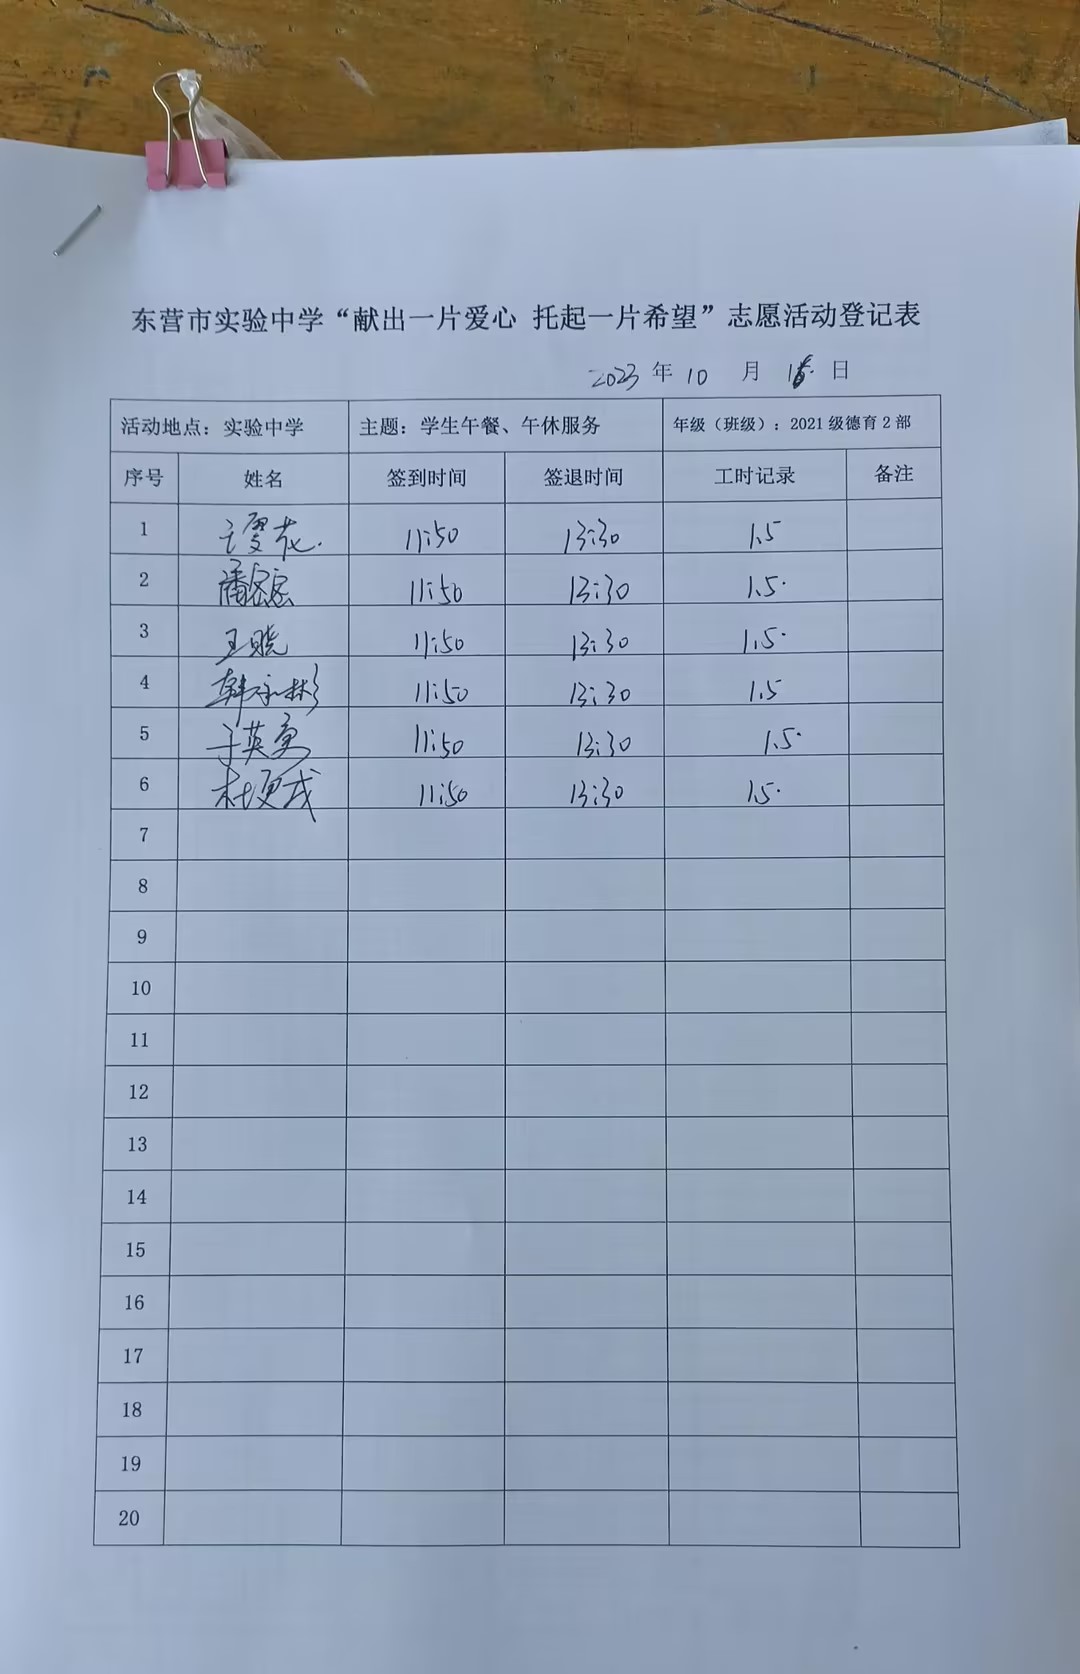 东营市实验中学“献出一片爱心 托起一片希望”志愿活动登记表
2023 年 10 月 日
活动地点：实验中学 主题：学生午餐、午休服务 年级（班级）：2021 级德育 2 部
序号 姓名 签到时间 签退时间 工时记录 备注
1 11:50 13:30 1.5
2 11:50 13:30 1.5
3 王晓 11:50 13:30 1.5
4 11:50 13:30 1.5
5 11:50 13:30 1.5
6 11:50 13:30 1.5
7
8
9
10
11
12
13
14
15
16
17
18
19
20